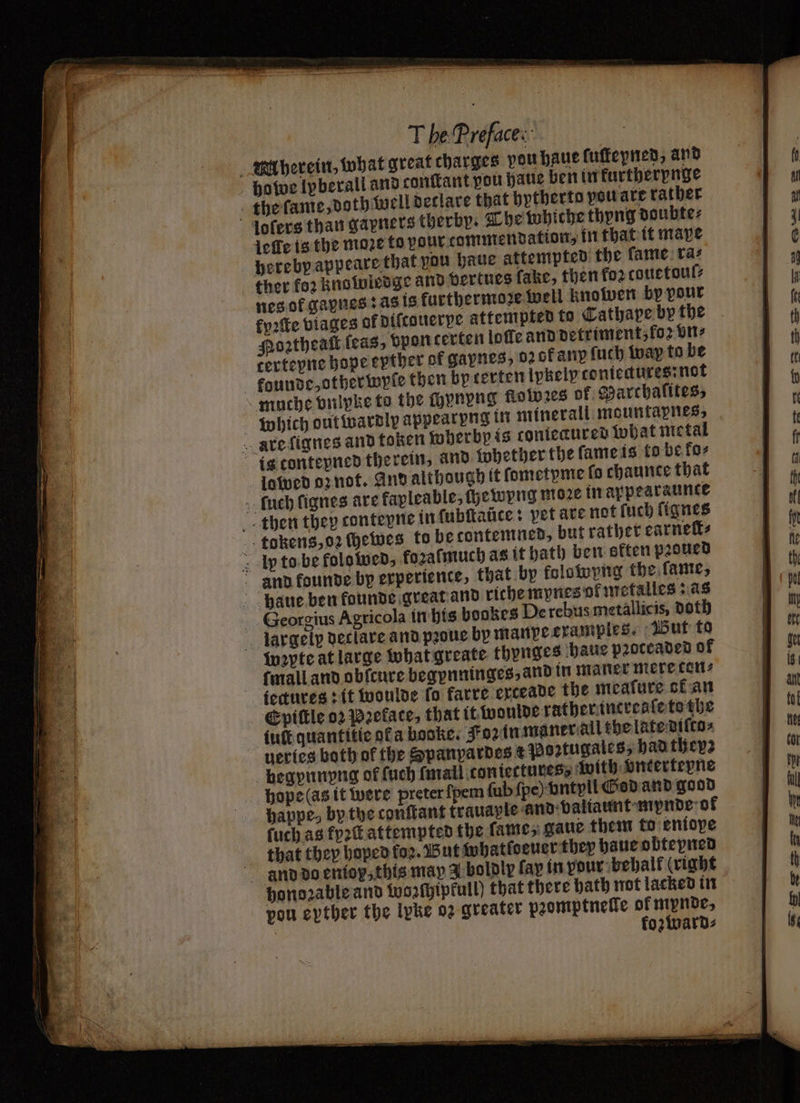 The Preface.
Wherein, what great charges you haue susteyned, and
howe lyberall and constant you haue ben in furtherynge
the same, doth well declare that hytherto you are rather
losers than gayners therby. The whiche thyng doubte-
lesse is the more to your commendation, in that it maye
hereby appeare that you haue attempted the same ra-
ther for knowledge and vertues sake, then for couetous-
nes of gaynes: as is furthermore well knowen by your
fyrste viages of discouerye attempted to Cathaye by the
Northeast seas, vpon certen losse and detriment, for vn-
certeyne hope eyther of gaynes, or of any such way to be
founde, otherwyse then by certen lykely coniectures: not
muche vnlyke to the shynyng flowres of Marchasites,
which outwardly appearyng in minerall mountaynes,
are signes and token wherby is coniectured what metal
is conteyned therein, and whether the same is to be fo-
lowed or not. And although it sometyme so chaunce that
such signes are fayleable, shewyng more in appearaunce
then they conteyne in substance: yet are not such signes
tokens, or shewes to be contemned, but rather earnest-
ly to be folowed, forasmuch as it hath ben often proued
and founde by experience, that by folowyng the same,
haue ben founde great and riche mynes of metalles: as
Georgius Agricola in his bookes De rebus metallicis, doth
largely declare and proue by manye examples. But to
wryte at large what greate thynges haue proceaded of
small and obscure begynninges, and in maner mere con-
iectures: it woulde so farre exceade the measure of an
Epistle or Preface, that it woulde rather increase to the
iust quantitie of a booke. For in maner all the late disco-
ueries both of the Spanyardes & Portugales, had theyr
begynnyng of such small coniectures, with vncerteyne
hope (as it were preter spem sub spe) vntyll God and good
happe, by the constant trauayle and valiaunt mynde of
such as fyrst attempted the same, gaue them to enioye
that they hoped for. But whatsoeuer they haue obteyned
and do enioy, this may I boldly say in your behalf (right
honorable and worshipfull) that there hath not lacked in
you eyther the lyke or greater promptnesse of mynde,
forward-